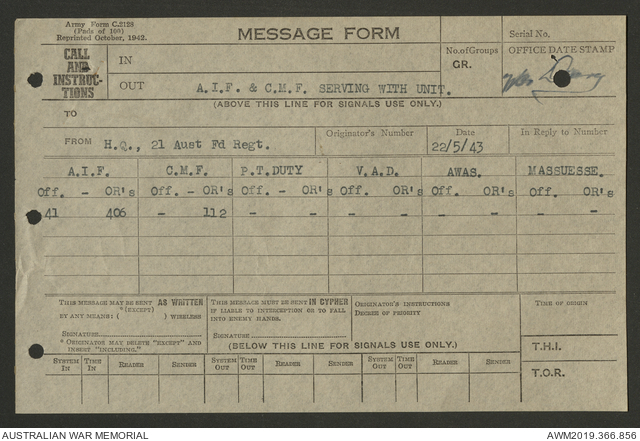 Army Form C.2128
(Pads of 100)
Reprinted October, 1942.
MESSAGE FORM
Serial No.
CALL AND INSTRUC-TIONS
IN
OUT
No. of Groups
GR.
OFFICE DATE STAMP
A.I.F. & C.M.F. SERVING WITH UNIT.
(ABOVE THIS LINE FOR SIGNALS USE ONLY.)
TO
FROM H.Q., 21 Aust Fd Regt.
Originator's Number
Date
22/5/43
In Reply to Number
A.I.F. C.M.F. P.T.DUTY V.A.D. AWAS. MASSUESSE.
Off. - OR's Off. - OR's Off. OR's Off. OR's Off. OR's Off. OR's
41 406 - 112 - - - - - - - -
THIS MESSAGE MAY BE SENT AS WRITTEN
*(EXCEPT)
BY ANY MEANS ( ) WIRELESS
SIGNATURE
* ORIGINATOR MAY DELETE "EXCEPT" AND
INSERT "INCLUDING."
THIS MESSAGE MUST BE SENT IN CYPHER
IF LIABLE TO INTERCEPTION OR TO FALL
INTO ENEMY HANDS.
SIGNATURE
ORIGINATOR'S INSTRUCTIONS
DEGREE OF PRIORITY
TIME OF ORIGIN
(BELOW THIS LINE FOR SIGNALS USE ONLY.)
T.H.I.
T.O.R.
SYSTEM IN TIME IN READER SENDER SYSTEM OUT TIME OUT READER SENDER SYSTEM OUT TIME OUT READER SENDER
AUSTRALIAN WAR MEMORIAL
AWM2019.366.856